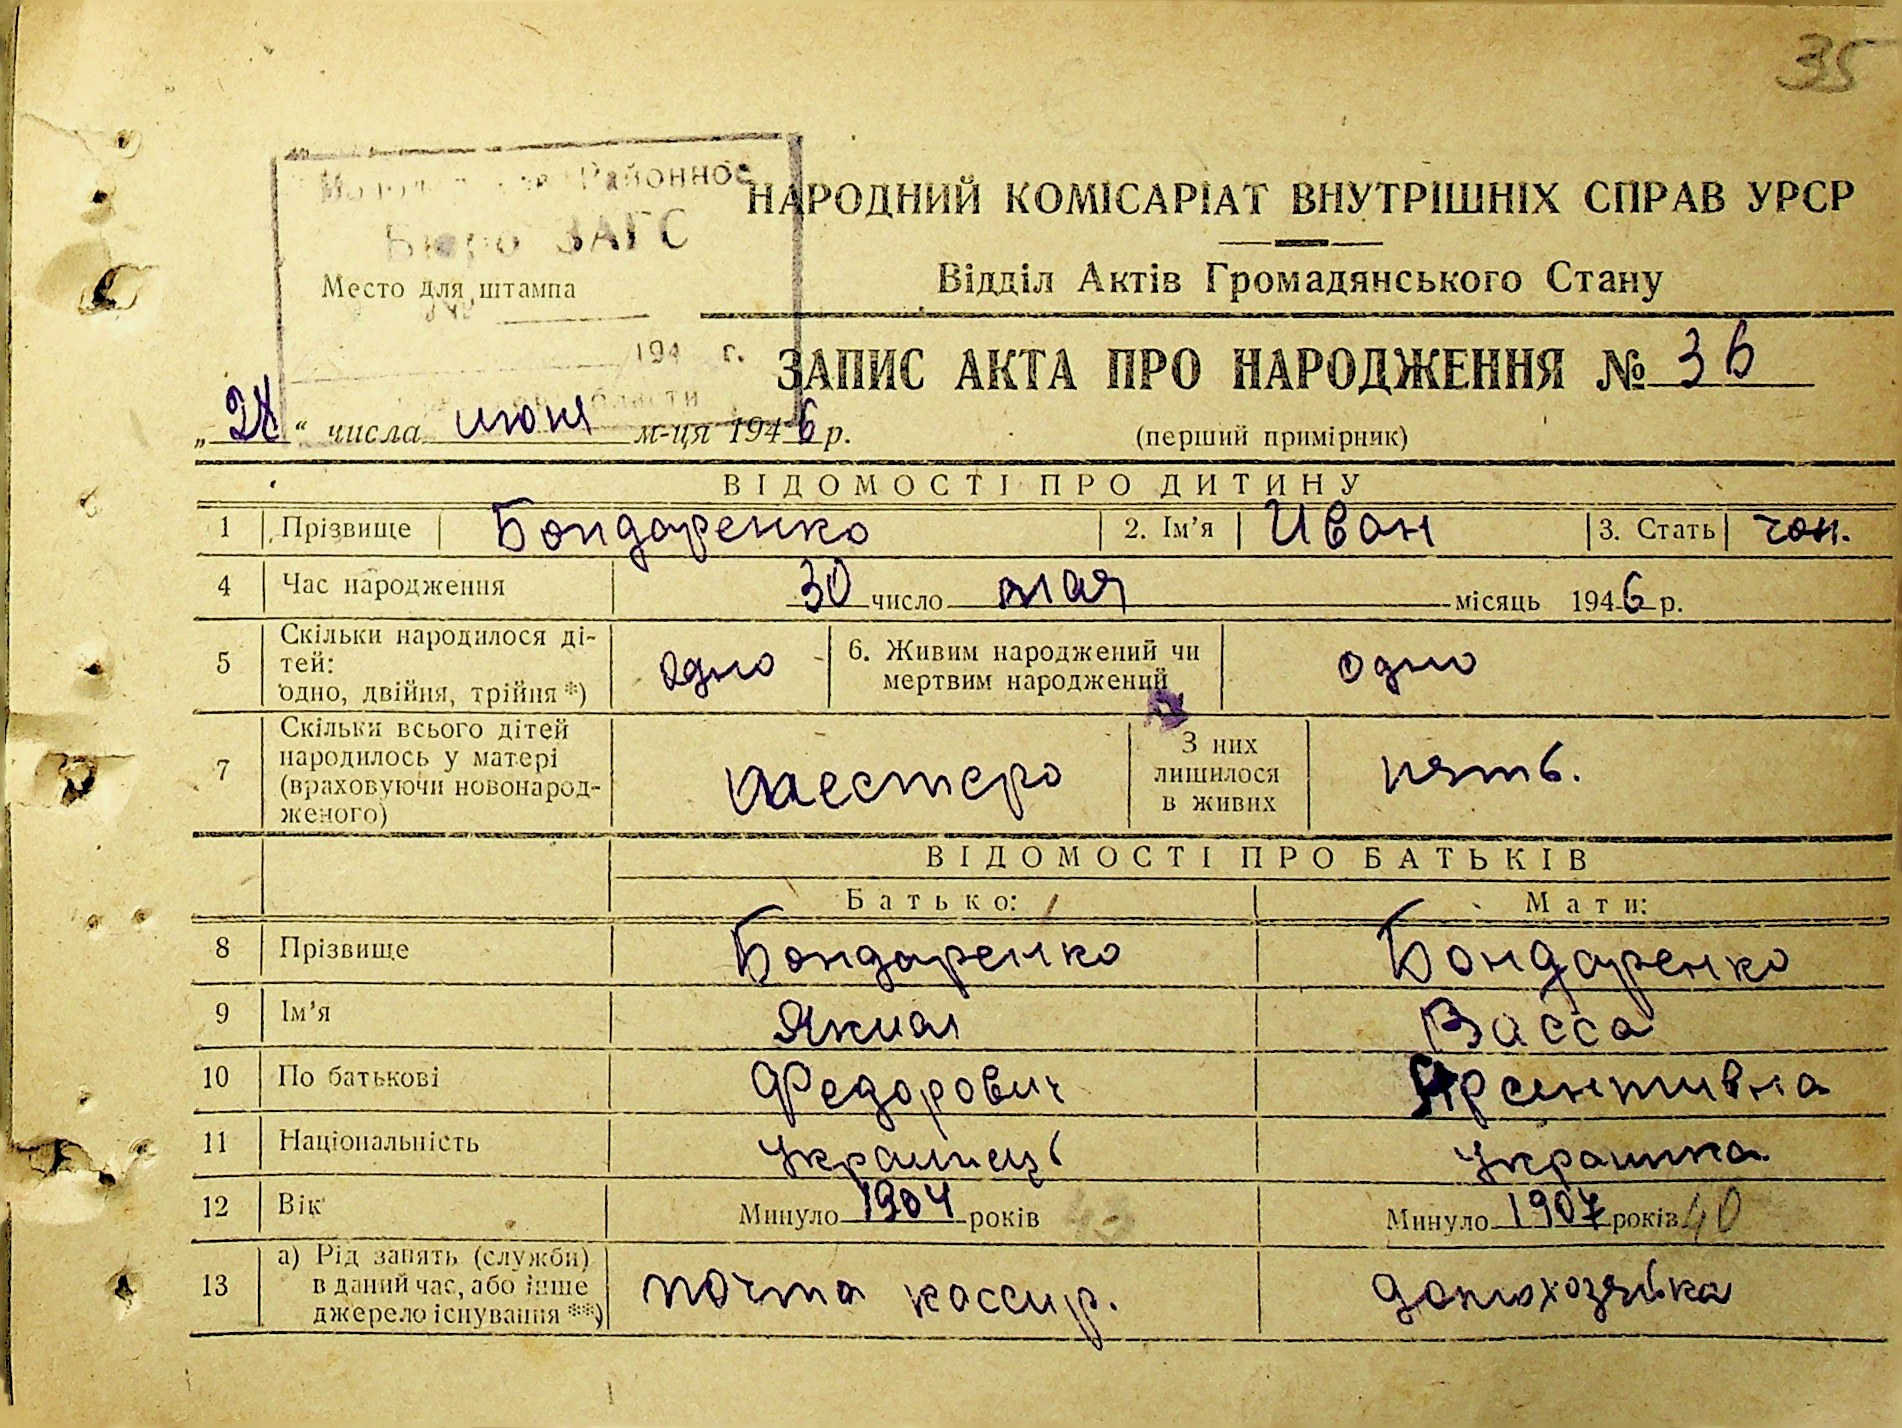 35
Районное
Бюро ЗАГС
НАРОДНИЙ КОМІСАРІАТ ВНУТРІШНІХ СПРАВ УРСР
Место для штампа
Відділ Актів Громадянського Стану
№
194 г.
ЗАПИС АКТА ПРО НАРОДЖЕННЯ № 36
„28“ числа июня м-ця 1946 р.
(перший примірник)
ВІДОМОСТІ ПРО ДИТИНУ
1 Прізвище Бондаренко 2. Ім’я Иван 3. Стать чол.
4 Час народження 30 число мая місяць 1946 р.
5 Скільки народилося ді-
тей:
одно, двійня, трійня *) одно 6. Живим народжений чи
мертвим народжений одно
7 Скільки всього дітей
народилось у матері
(враховуючи новонарод-
женого) шестеро З них
лишилося
в живих пять.
ВІДОМОСТІ ПРО БАТЬКІВ
Батько: Мати:
8 Прізвище Бондаренко Бондаренко
9 Ім’я Яким Васса
10 По батькові Федорович Арсентивна
11 Національність украинець украинка
12 Вік Минуло 1904 років Минуло 1907 років 40
13 а) Рід занять (служби)
в даний час, або інше
джерело існування **) почта кассир. домохозяйка